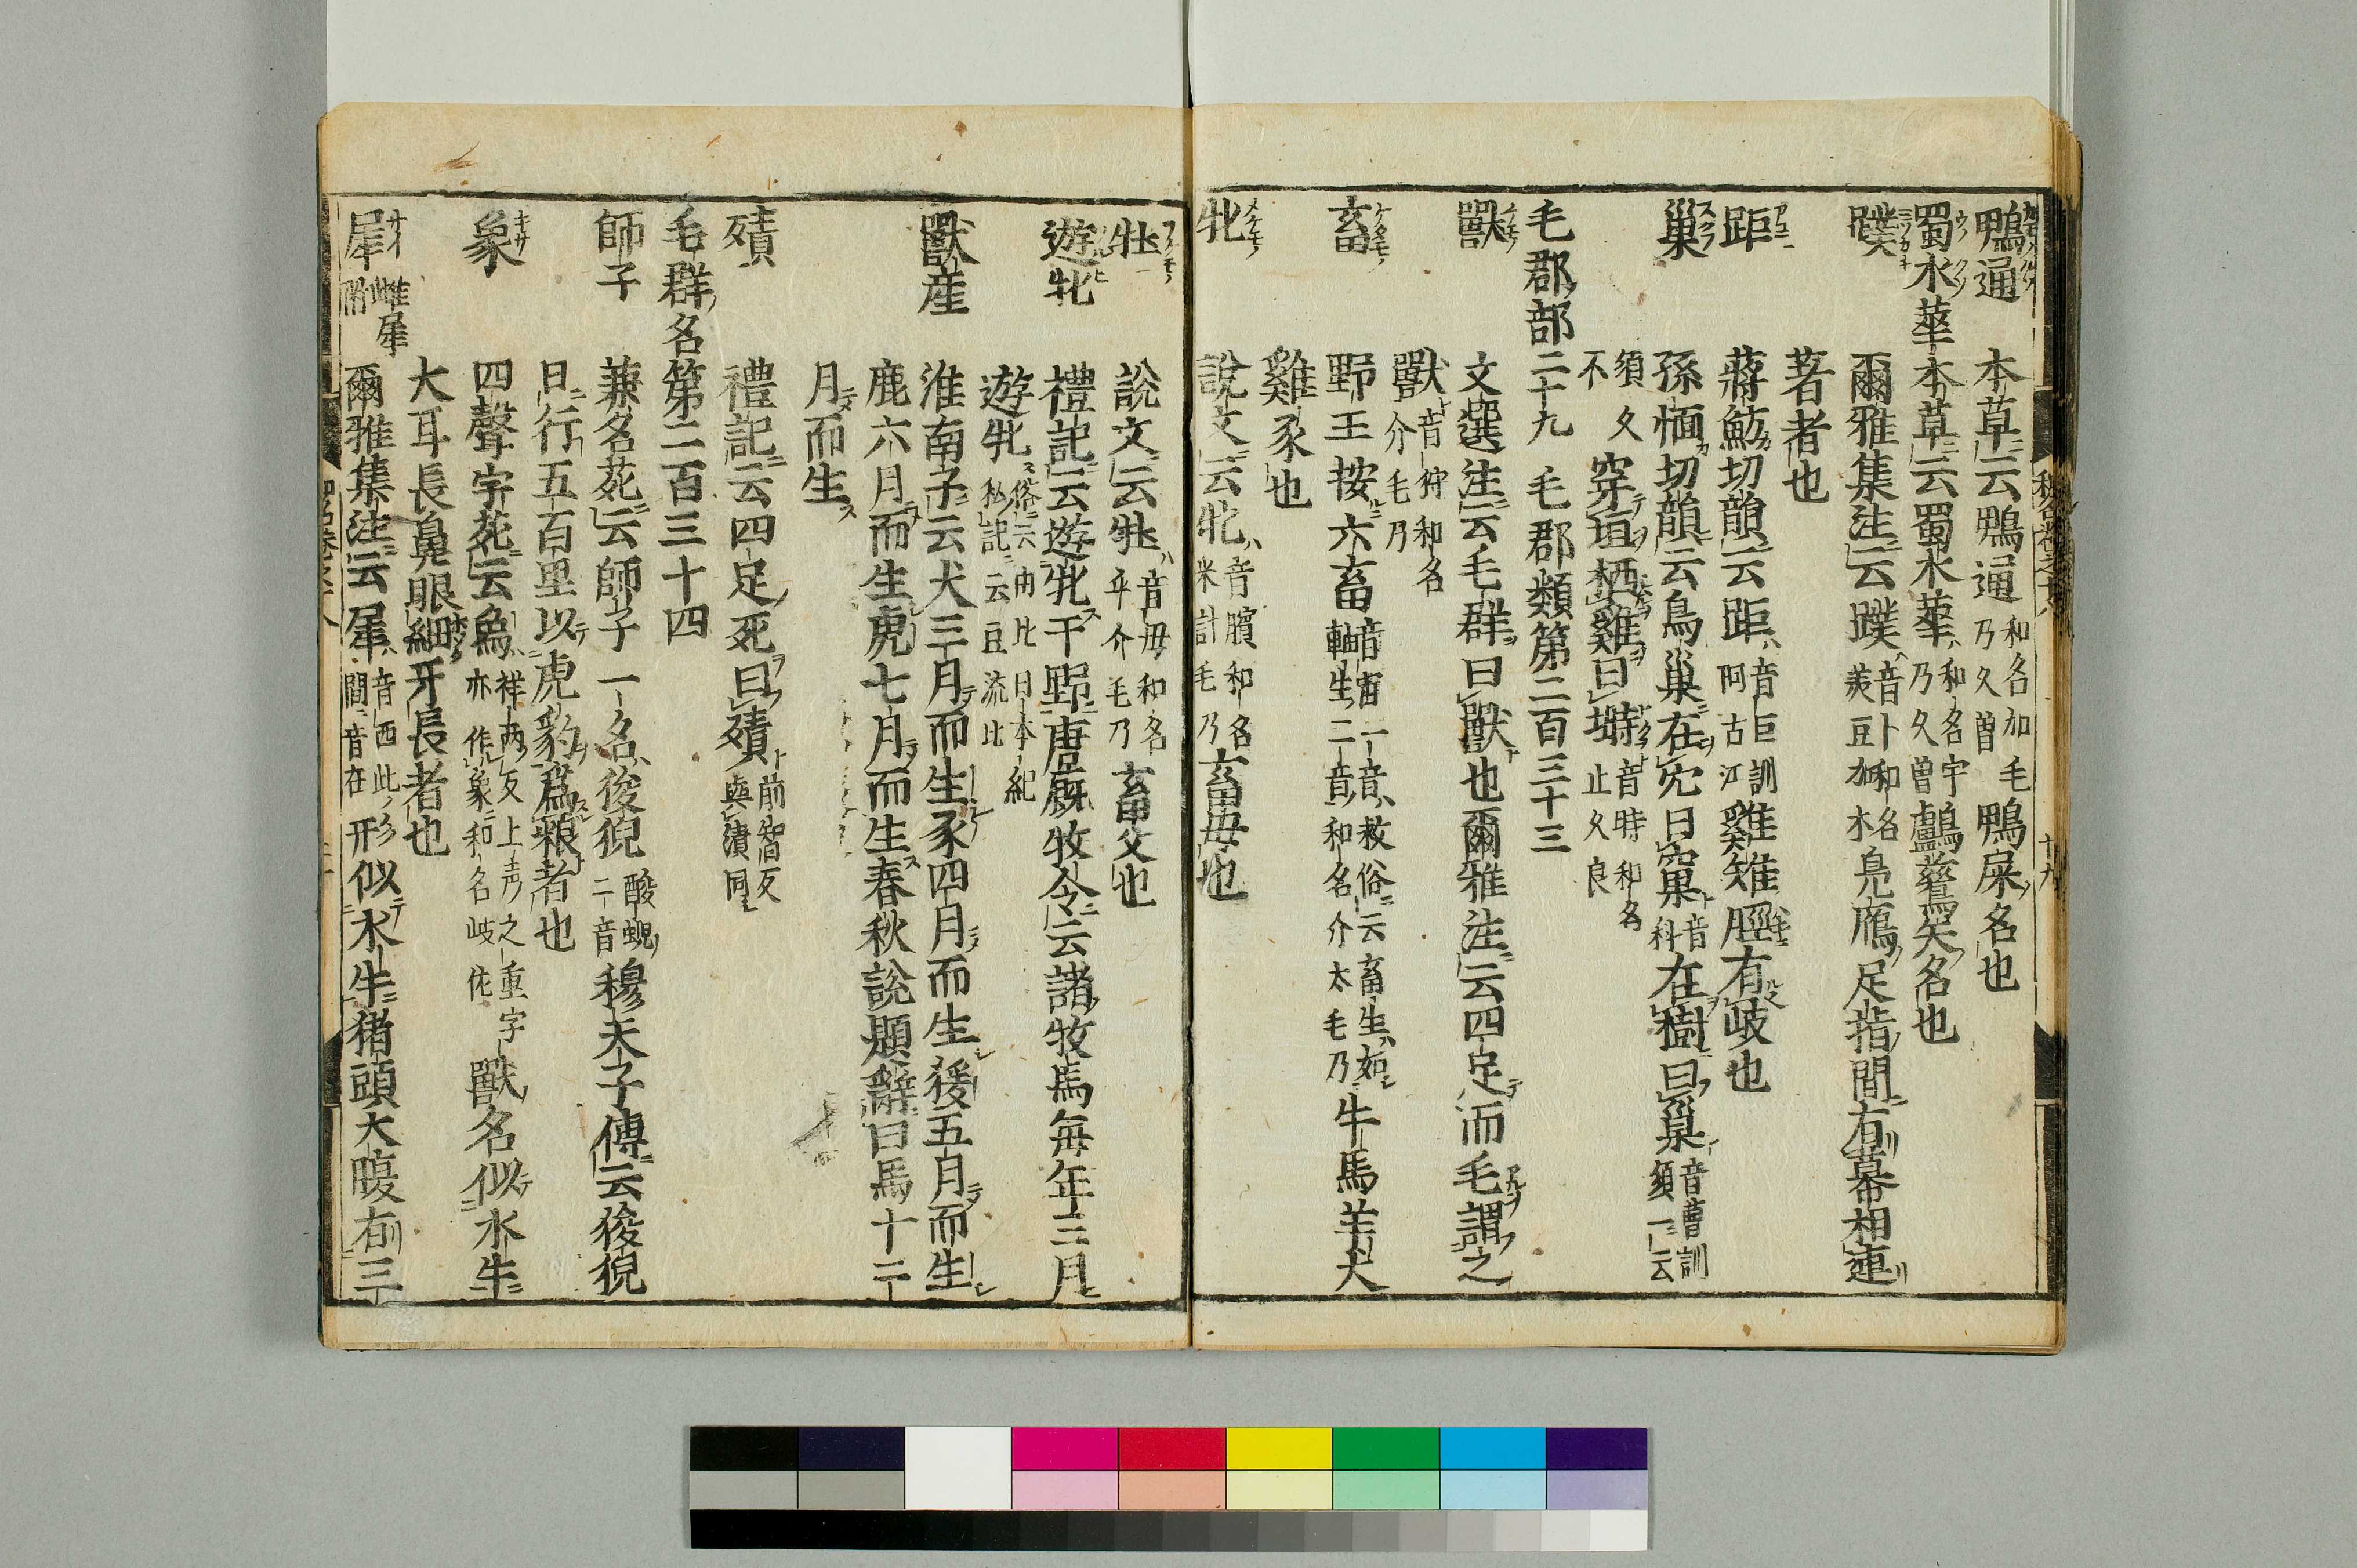 鴨通 本草云鴨通和名加毛乃久曽鴨屎名也
蜀水華 本草云蜀水華和名宇乃久曽鸕鷀矢名也
蹼 爾雅集注云蹼音卜和名美豆加木鳧鴈足指間有幕相連
著者也
距 蔣魴切韻云距音巨訓阿古江雞雉脛有岐也
巢 孫愐切韻云鳥巢在穴曰窠音科在樹曰巢音曹訓須一云
須久不穿垣栖雞曰塒音時和名止久良
毛郡部二十九 毛郡類第二百三十三
獸 文選注云毛群曰獸也爾雅注云四足而毛謂之
獸音狩和名介毛乃
畜 野王按六畜音宙一音救俗云畜生如軸生二音和名介太毛乃牛馬羊犬
雞豕也
牝 說文云牝音臏和名米計毛乃畜母也
牡 說文云牡音母和名乎介毛乃畜父也
遊牝 禮記云遊牝于野唐廐牧令云諸牧馬每年三月
遊牝俗云由比日本紀私記云豆流比
獸産 淮南子云犬三月而生豕四月而生猨五月而生
鹿六月而生虎七月而生春秋說題辭曰馬十二
月而生
殰 禮記云四足死曰殰前智反與漬同
毛群名第二百三十四
師子 兼名苑云師子一名狻猊酸蜺二音穆天子傳云狻猊
日行五百里以虎豹爲粮者也
象 四聲字苑云象祥兩反上声之重字亦作象和名岐佐獸名似水牛
大耳長鼻眼細牙長者也
犀 雌犀附 爾雅集注云犀音西此間音在形似水牛猪頭大腹有三
和名卷之十八
十九